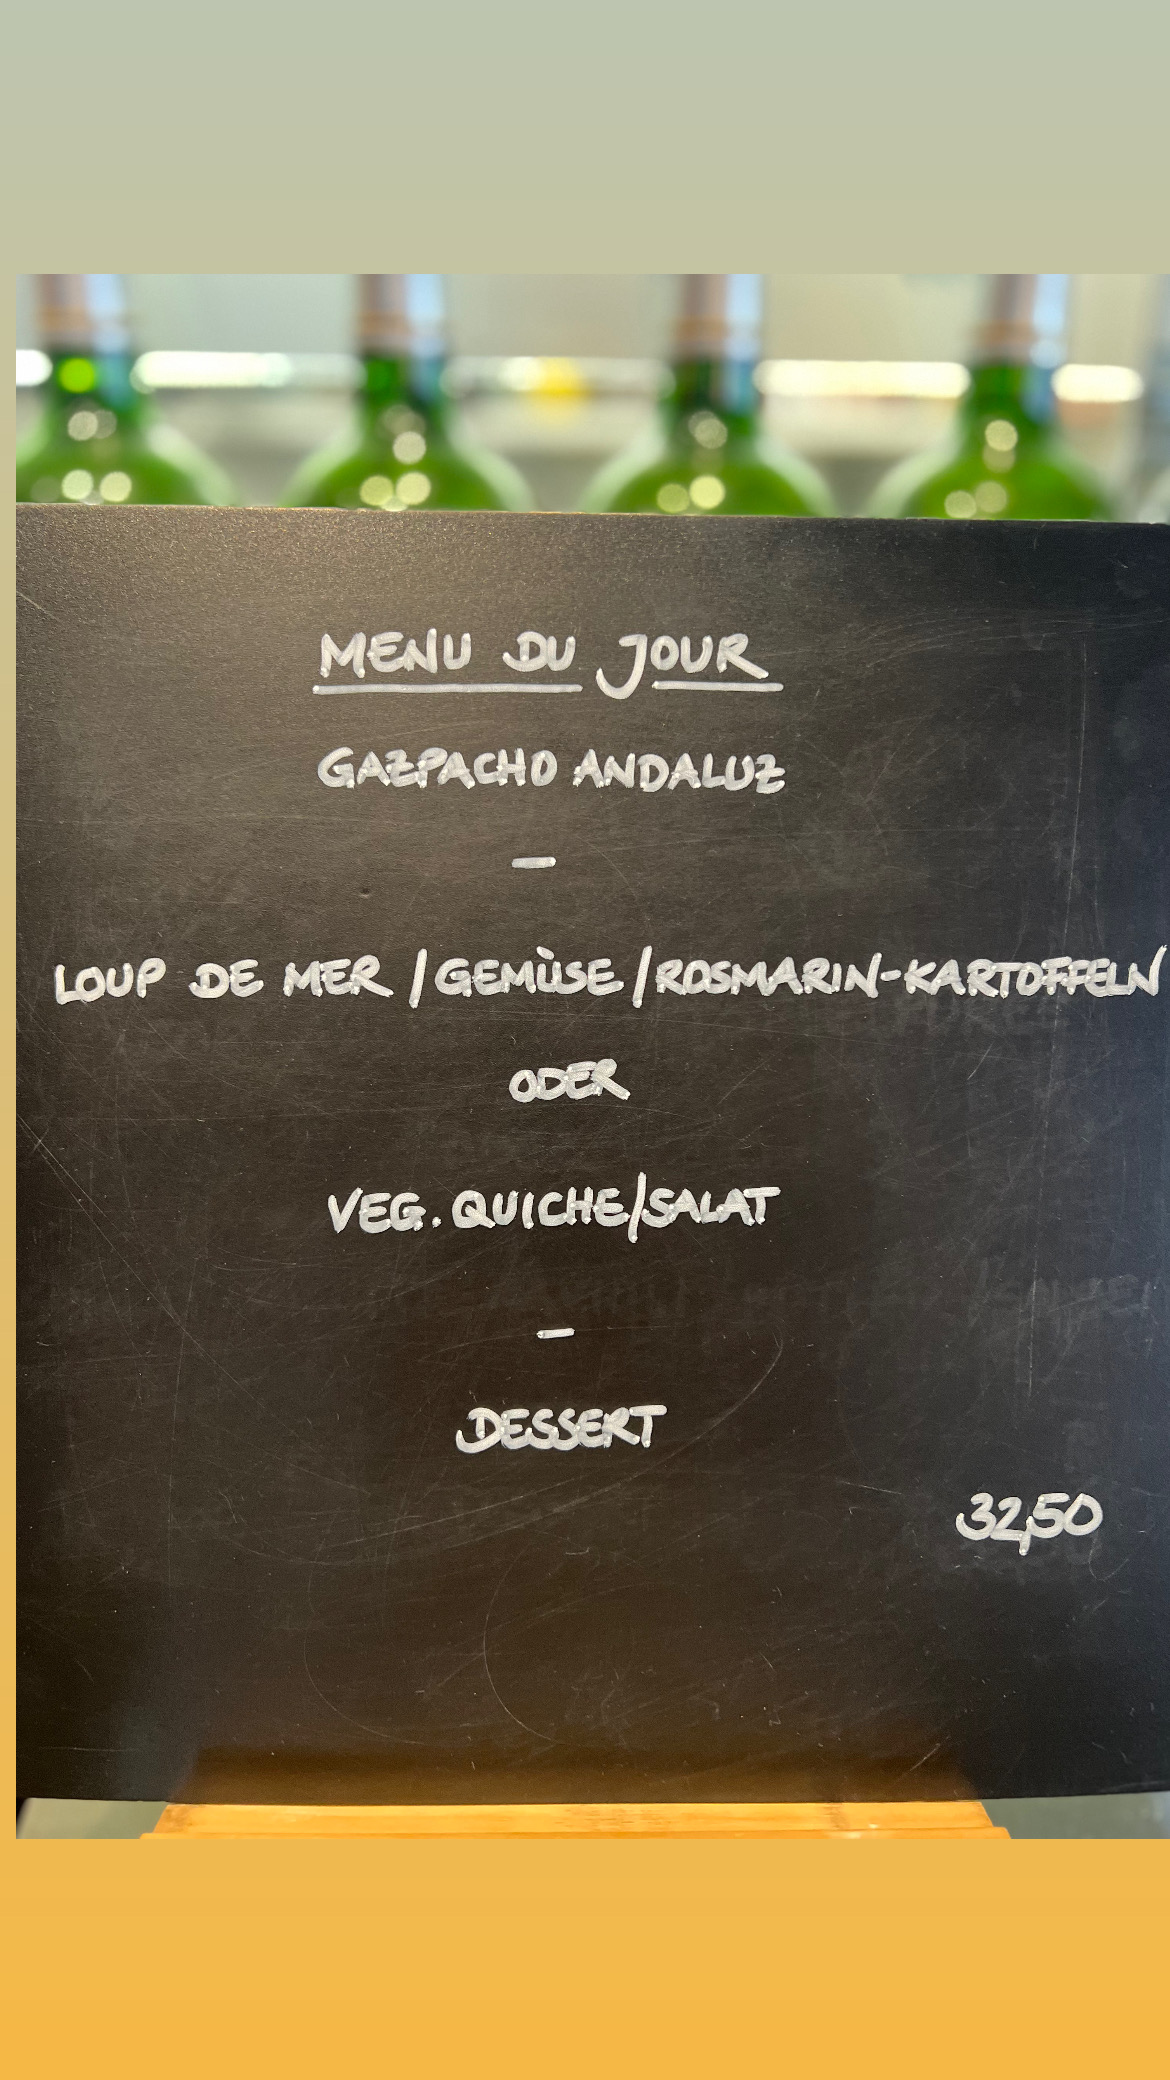 MENU DU JOUR
GAZPACHO ANDALUZ
–
LOUP DE MER / GEMÜSE / ROSMARIN-KARTOFFELN
ODER
VEG. QUICHE/SALAT
–
DESSERT
32,50